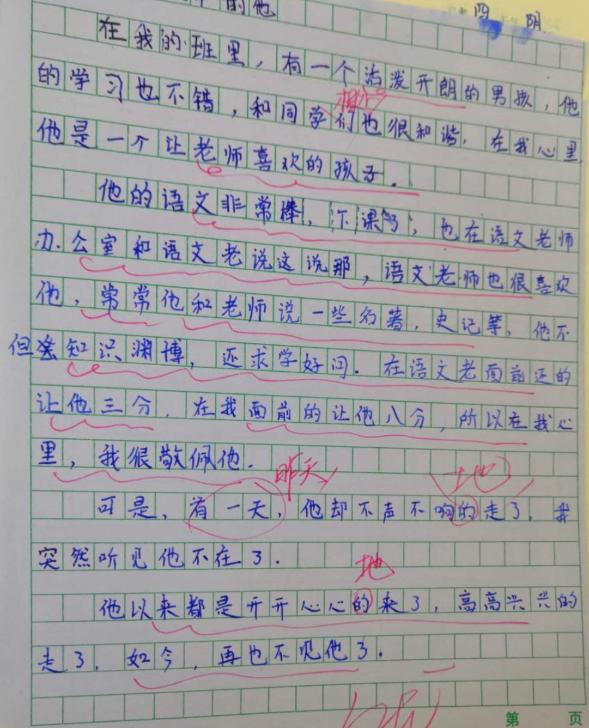 的他
在我的班里，有一个活泼开朗的男孩，他
的学习也不错，和同学们也很和谐，在我心里
他是一个让老师喜欢的孩子。
他的语文非常棒，下课了，也在语文老师
办公室和语文老说这说那，语文老师也很喜欢
他，常常他和老师说一些名著，史记等，他不
但知识渊博，还求学好问．在语文老面前还的
让他三分，在我面前的让他八分，所以在我心
里，我很敬佩他．
昨天
地
可是，有一天，他却不声不响的走了，我
突然听见他不在了．
地
他以来都是开开心心的来了，高高兴兴的
走了，如今，再也不见他了．
第 页